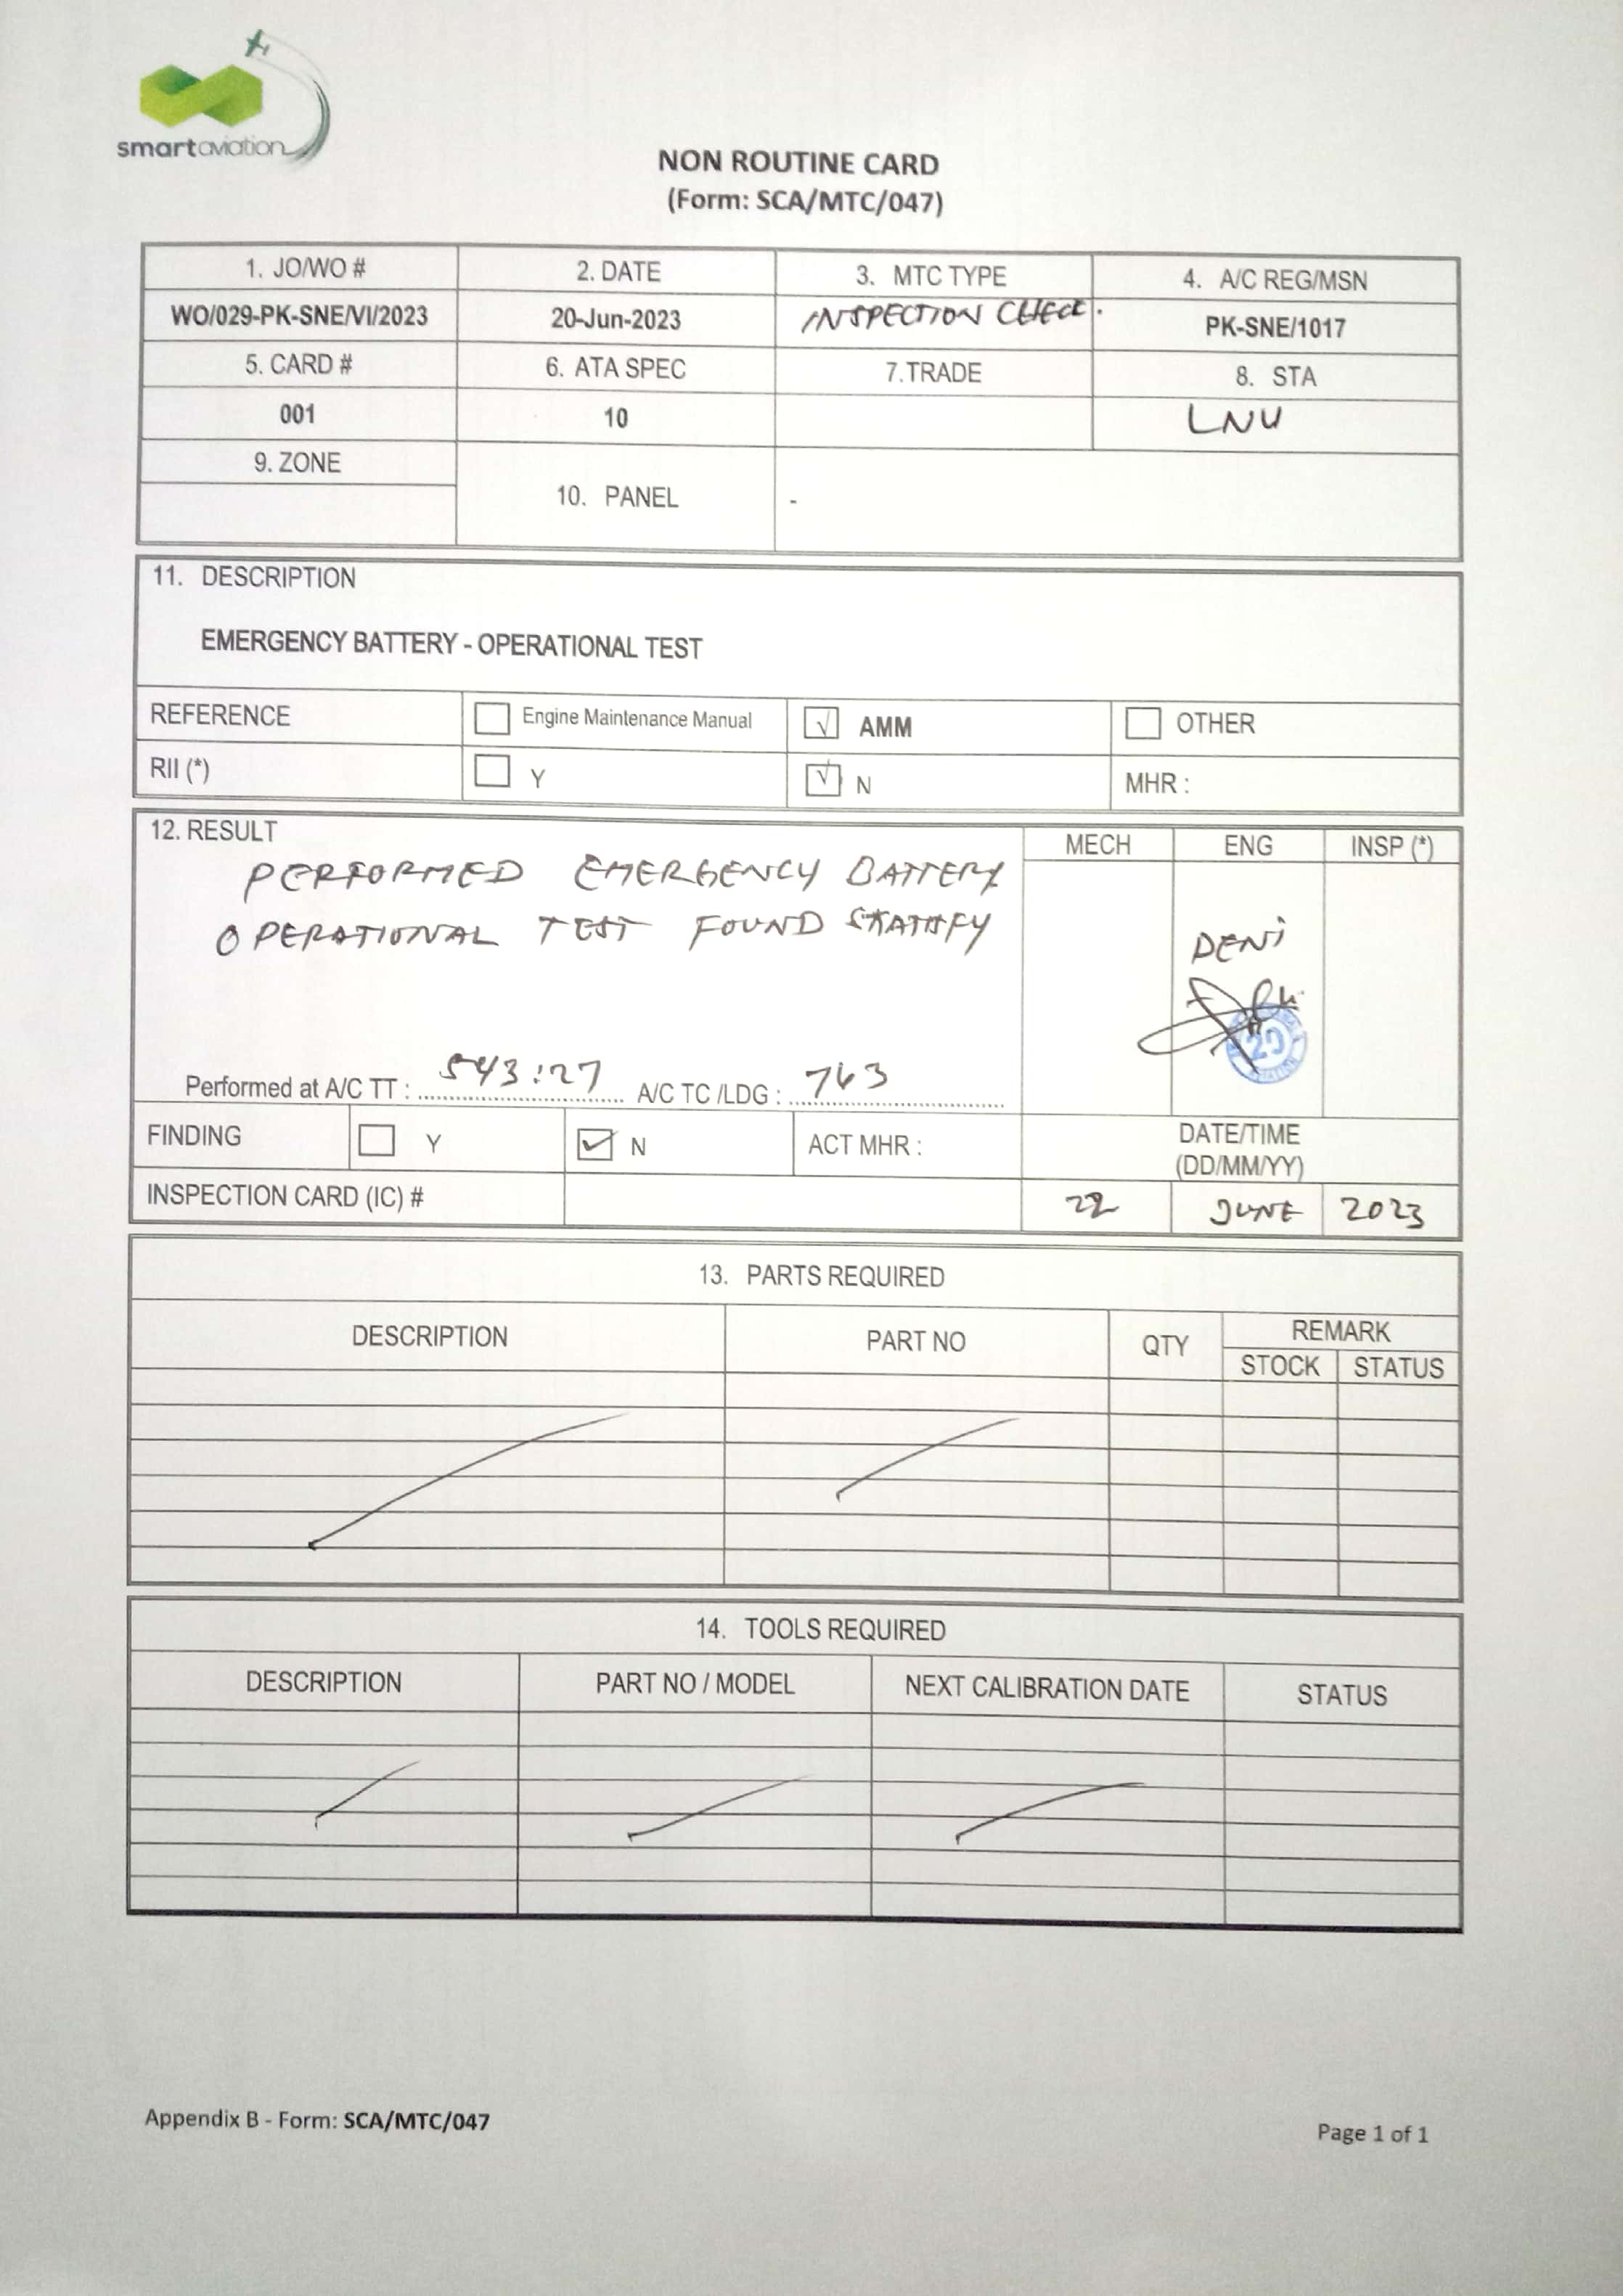 smartaviation
NON ROUTINE CARD
(Form: SCA/MTC/047)
1. JO/WO # 2. DATE 3. MTC TYPE 4. A/C REG/MSN
WO/029-PK-SNE/VI/2023 20-Jun-2023 INSPECTION CHECK. PK-SNE/1017
5. CARD # 6. ATA SPEC 7.TRADE 8. STA
001 10 LNU
9. ZONE
10. PANEL -
11. DESCRIPTION
EMERGENCY BATTERY - OPERATIONAL TEST
REFERENCE Engine Maintenance Manual √ AMM OTHER
RII (*) Y √ N MHR :
12. RESULT MECH ENG INSP (*)
PERFORMED EMERGENCY BATTERY
OPERATIONAL TEST FOUND
DENI
20
Performed at A/C TT : 543:27 A/C TC /LDG : 763
FINDING Y ✓ N ACT MHR : DATE/TIME
(DD/MM/YY)
INSPECTION CARD (IC) # 22 JUNE 2023
13. PARTS REQUIRED
DESCRIPTION PART NO QTY REMARK
STOCK STATUS
14. TOOLS REQUIRED
DESCRIPTION PART NO / MODEL NEXT CALIBRATION DATE STATUS
Appendix B - Form: SCA/MTC/047
Page 1 of 1